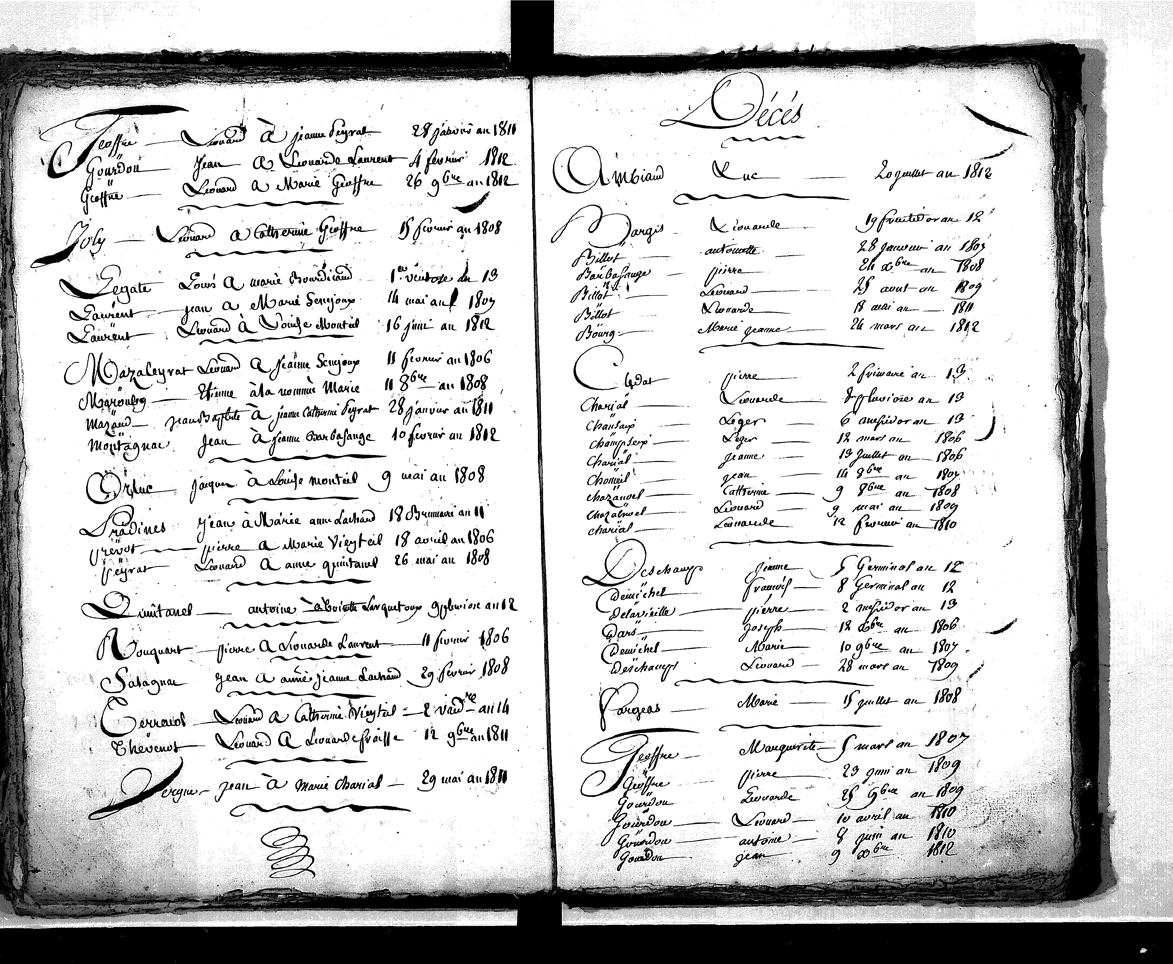 Geoffre — Léonard à jeanne Peyrat 28 janvier an 1811
Gourdon — Jean à Léonarde Laurent 4 fevrier 1812
Geoffre — Léonard a Marie Geoffre 26 9bre an 1812
Joly — Léonard a Catherine Geoffre 15 fevrier an 1808
Legate Louis a marie Bourdicaud 1er ventose an 13
Laurent — jean a Marie Senejoux 14 mai an 1807
Laurent — Léonard à Louise Monteil 16 juin an 1812
Mazaleyrat Léonard a Jeanne Senejoux 11 fevrier an 1806
Etienne à la nommée Marie 11 8bre an 1808
Mazaud — jean Baptiste à jeanne Catherine Peyrat 28 janvier an 1811
Montagnac Jean à Jeanne Barbasange 10 fevrier an 1812
Orluc Jacques à Louise monteil 9 mai an 1808
Pradines Jean à Marie anne Lachaud 18 Brumaire an 11
Prevot — pierre a Marie Vieyteil 18 avril an 1806
Peyrat Léonard a anne quintanel 26 mai an 1808
Quintanel — antoine à 12
Rouquart — pierre a Léonarde Laurent — 11 fevrier 1806
Salagnac Jean a anne jeanne Lachaud 29 fevrier 1808
Terraciol — Léonard a Catherine Vieyteil — 2 vendre an 14
Thévenot — Léonard a Léonarde fraisse 12 9bre an 1811
Vergne — Jean à Marie Charial — 29 mai an 1811
Décés
Ambiaud Luc — 20 juillet an 1812
Bargis Léonarde 19 fructidor an 12
Billot antoinette 28 janvier an 1807
Barbasange pierre 24 xbre an 1808
Billot Léonard 25 aout an 1809
Billot Léonarde 18 mai an 1811
Bourg — Marie jeanne 24 mars an 1812
Cludat pierre 2 frimaire an 13
Charial Léonarde 8 pluviose an 13
Chansaux — Léger 6 messidor an 13
Champseix Léger 12 mars an 1806
Charial — jeanne 13 juillet an 1806
Chomeil jean 14 9bre an 1807
Chazanoel Catherine 9 8bre an 1808
Chazanoel Léonard 9 mai an 1809
charial Léonarde 12 fevrier an 1810
Deschamps jeanne 5 Germinal an 12
Demichel françois 8 Germinal an 12
Delavieille pierre 2 messidor an 13
Dars Joseph 12 xbre an 1806
Demichel Marie 10 9bre an 1807
Deschamps Léonard 28 mars an 1809
Fargeas Marie 15 juillet an 1808
Geoffre Marguerite 5 mars an 1807
Geoffre pierre 23 juin an 1809
Gourdon Léonarde 25 9bre an 1809
Gourdon Léonard 10 avril an 1810
Gourdon antoine 8 juin an 1810
Gourdon jean 9 xbre 1812